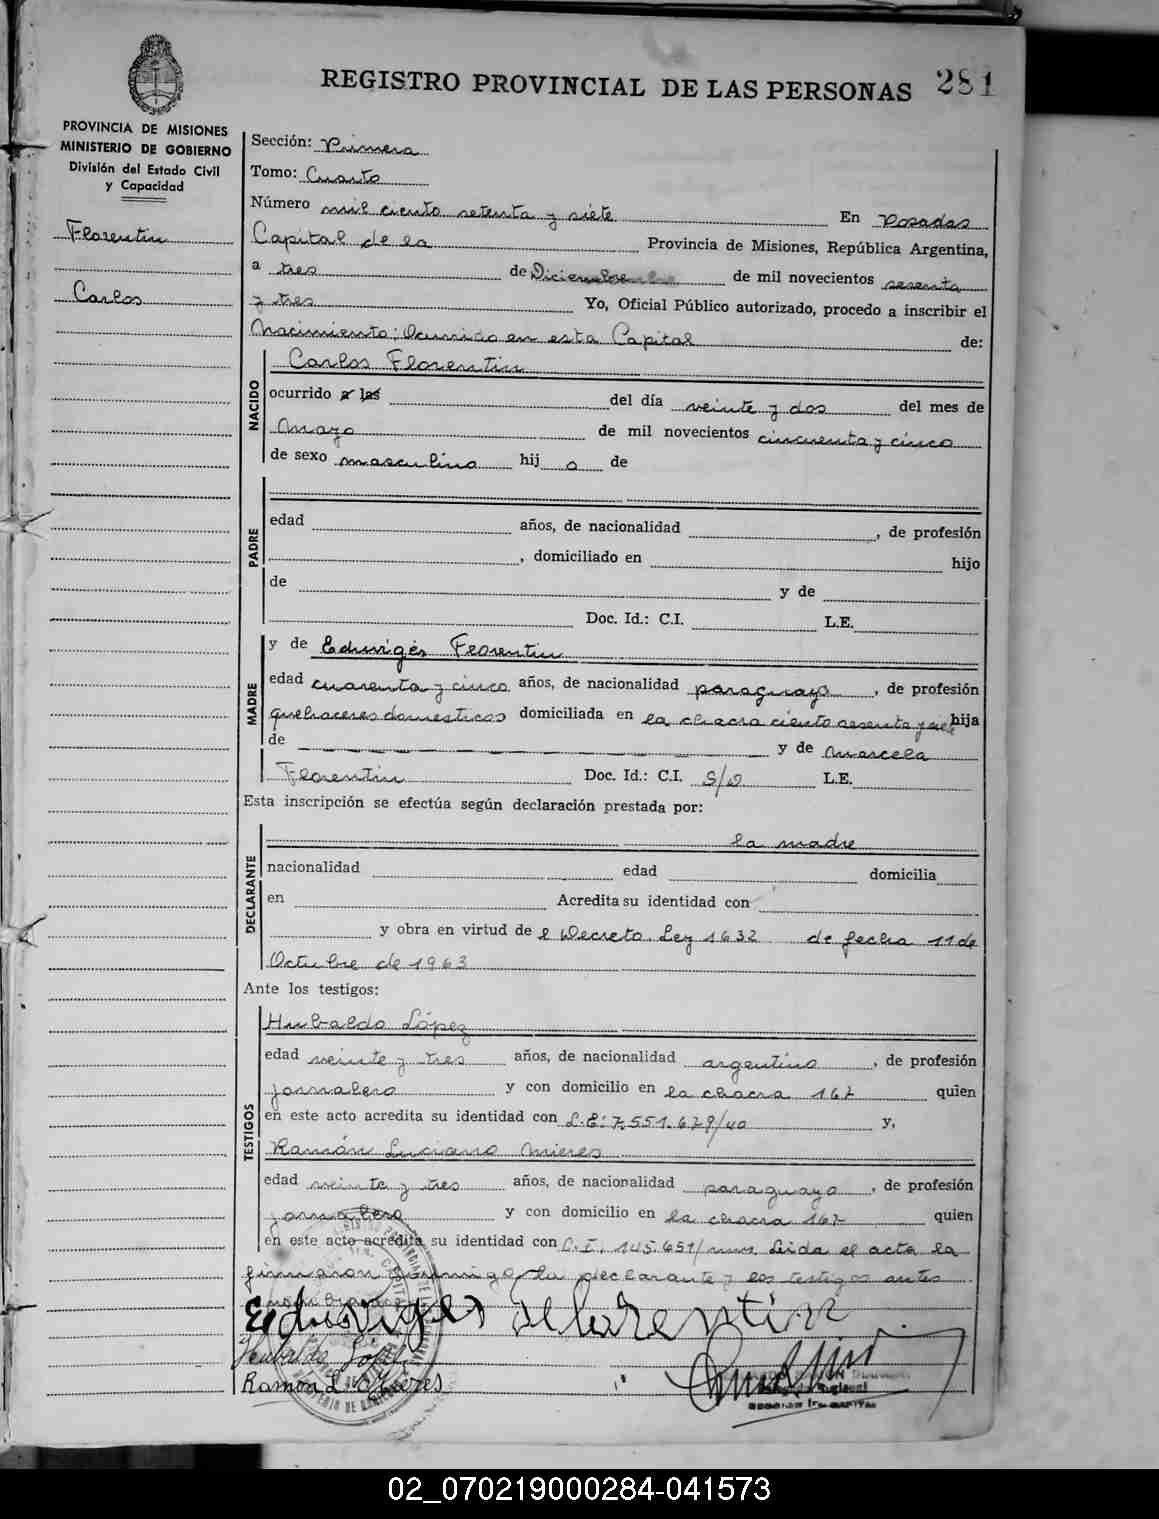 REGISTRO PROVINCIAL DE LAS PERSONAS 281
PROVINCIA DE MISIONES
MINISTERIO DE GOBIERNO
División del Estado Civil
y Capacidad
Florentin
Carlos
Sección: Primera
Tomo: Cuarto
Número mil ciento setenta y siete En Posadas
Capital de la Provincia de Misiones, República Argentina,
a tres de Diciembre de mil novecientos sesenta
y tres Yo, Oficial Público autorizado, procedo a inscribir el
Nacimiento: Ocurrido en esta Capital de:
NACIDO
Carlos Florentin
ocurrido a las del día veinte y dos del mes de
Mayo de mil novecientos cincuenta y cinco
de sexo masculino hij o de
PADRE
edad años, de nacionalidad , de profesión
, domiciliado en hijo
de y de
Doc. Id.: C.I. L.E.
MADRE
y de Eduviges Florentin
edad cuarenta y cinco años, de nacionalidad paraguaya , de profesión
quehaceres domesticos domiciliada en la chacra ciento sesenta y siete hija
de y de Marcela
Florentin Doc. Id.: C.I. S/D L.E.
Esta inscripción se efectúa según declaración prestada por:
DECLARANTE
la madre
nacionalidad edad domicilia
en Acredita su identidad con
y obra en virtud de l Decreto Ley 1632 de fecha 11 de
Octubre de 1963
Ante los testigos:
TESTIGOS
Hubaldo López
edad veinte y tres años, de nacionalidad argentino , de profesión
jornalero y con domicilio en la chacra 167 quien
en este acto acredita su identidad con L.E: 7.551.679/40 y,
Ramón Luciano Mieres
edad veinte y tres años, de nacionalidad paraguaya , de profesión
jornalero y con domicilio en la chacra 167 quien
en este acto acredita su identidad con C.I. 145.651/ Leida el acta la
firmaron conmigo la declarante y los testigos antes
nombrados
Eduviges Florentin
Hubaldo López
Ramon L. Mieres
02_070219000284-041573